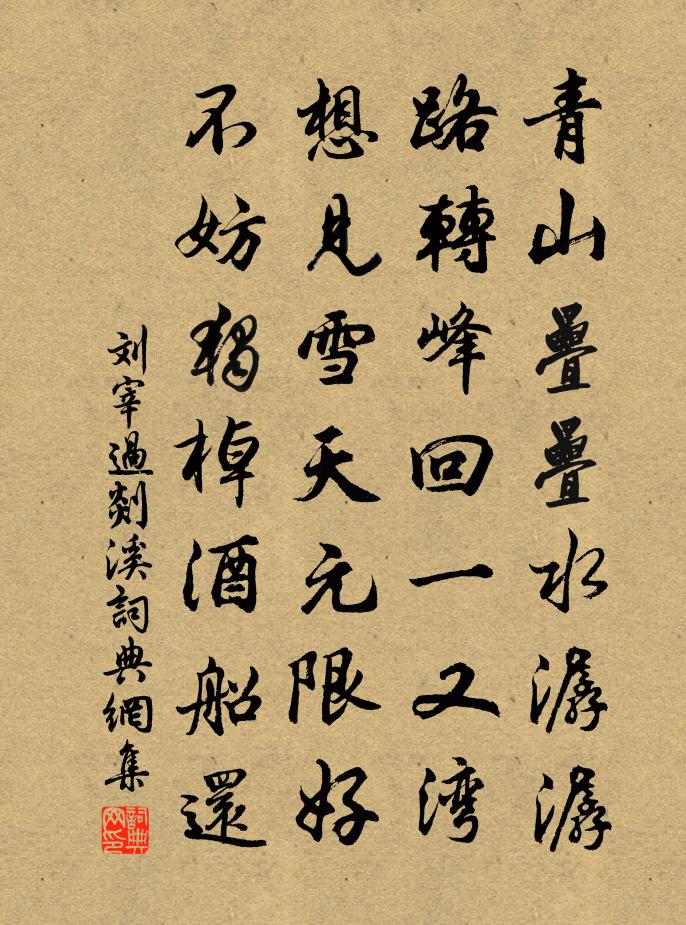 青山疊疊水潺潺
路轉峰回一又湾
想見雪天元限好
不妨猲棹酒船還
刘宰過剡溪詞典網集
詞典网印